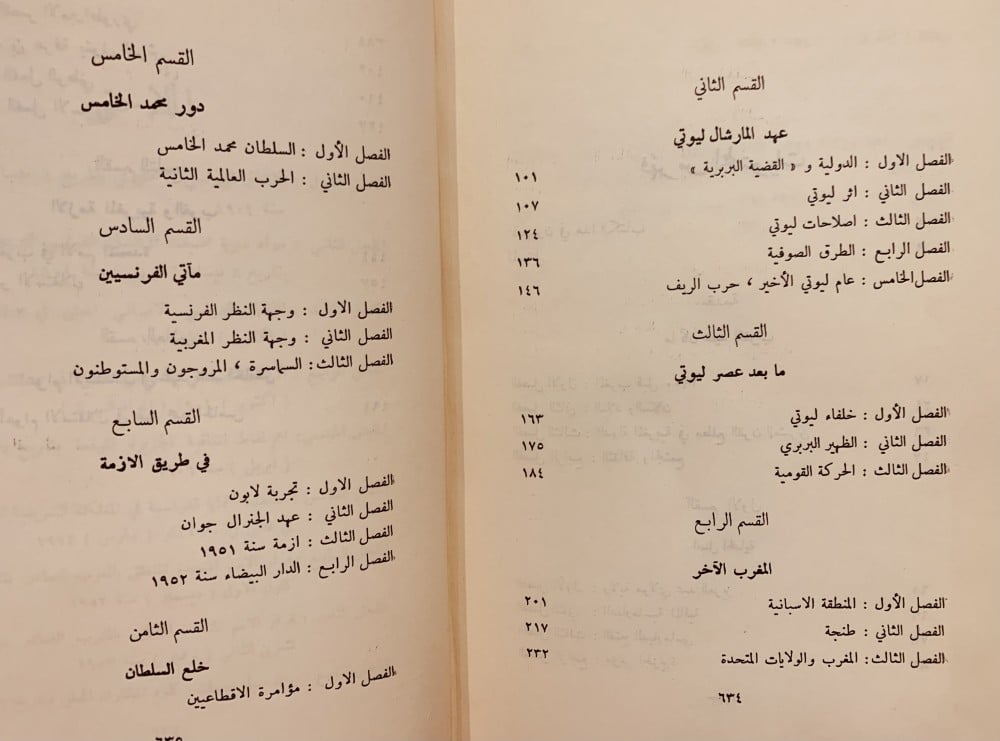 القسم الثاني
عهد المارشال ليوتي
الفصل الاول : الدولية و « القضية البربرية » ١٠١
الفصل الثاني : اثر ليوتي ١٠٧
الفصل الثالث : اصلاحات ليوتي ١٢٤
الفصل الرابع : الطرق الصوفية ١٣٦
الفصل الخامس : عام ليوتي الأخير ، حرب الريف ١٤٦
القسم الثالث
ما بعد عصر ليوتي
الفصل الأول : خلفاء ليوتي ١٦٣
الفصل الثاني : الظهير البربري ١٧٥
الفصل الثالث : الحركة القومية ١٨٤
القسم الرابع
المغرب الآخر
الفصل الأول : المنطقة الاسبانية ٢٠١
الفصل الثاني : طنجة ٢١٧
الفصل الثالث : المغرب والولايات المتحدة ٢٣٢
٦٣٤
القسم الخامس
دور محمد الخامس
الفصل الأول : السلطان محمد الخامس
الفصل الثاني : الحرب العالمية الثانية
القسم السادس
مآتي الفرنسيين
الفصل الاول : وجهة النظر الفرنسية
الفصل الثاني : وجهة النظر المغربية
الفصل الثالث : السماسرة ، المروجون والمستوطنون
القسم السابع
في طريق الازمة
الفصل الاول : تجربة لابون
الفصل الثاني : عهد الجنرال جوان
الفصل الثالث : ازمة سنة ١٩٥١
الفصل الرابع : الدار البيضاء سنة ١٩٥٢
القسم الثامن
خلع السلطان
الفصل الاول : مؤامرة الاقطاعيين